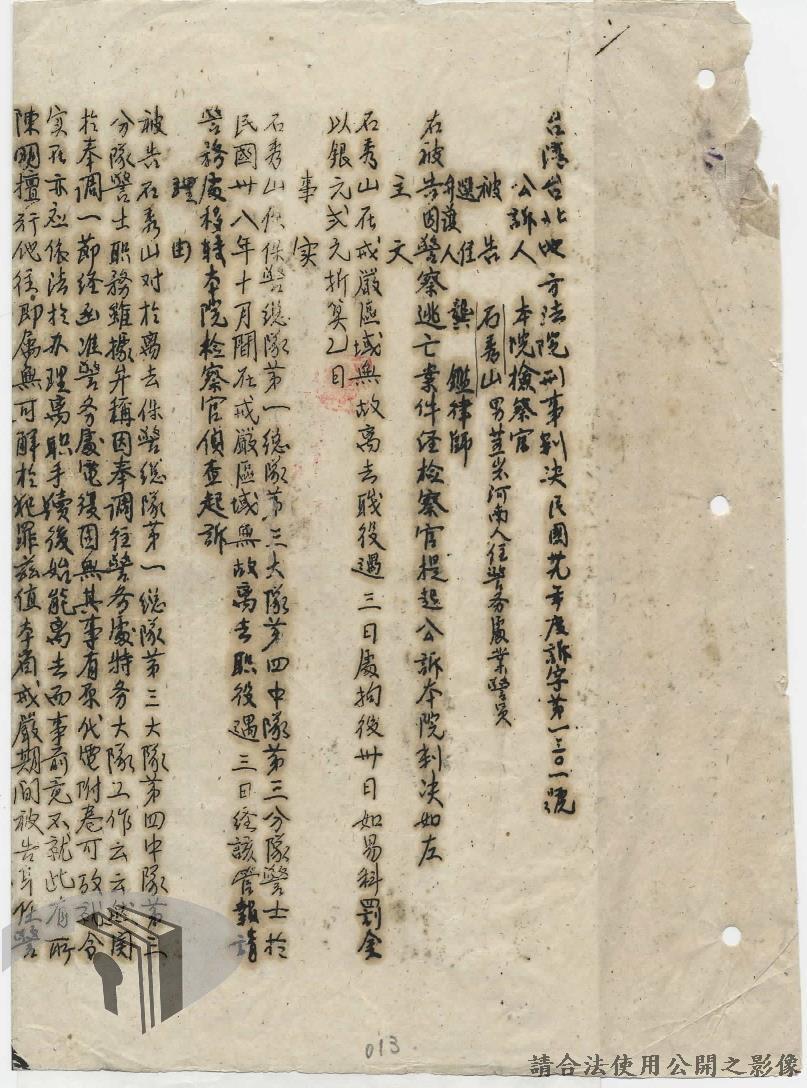 台灣台北地方法院刑事判决民國卅九年度訴字第一三〇一號
公訴人 本院檢察官
被告 石秀山 男 河南人住警务處業警員
選任辯護人 龔鑑律師
右被告因警察逃亡業件経檢察官提起公訴本院判决如左
主文
石秀山在戒嚴區域無故离去職役過三日處拘役卅日如易科罰金
以銀元弍元折算乙日
事实
石秀山係保警總隊第一總隊第三大隊第四中隊第三分隊警士於
民國卅八年十月間在戒嚴區域無故离去职役過三日経該管報請
警務處移轉本院檢察官偵查起訴
理由
被告石秀山对於离去保警總隊第一總隊第三大隊第四中隊第三
分隊警士职務雖據弁稱因奉調往警务處特务大隊工作云云然関
於奉調一節経函准警务處電復因無其事有原代電附卷可攷就令
实在亦应依法於办理离职手續後始能离去而事前竟不就此有所
陳明擅行他往即属無可解於犯罪兹值本省戒嚴期間被告身任警
013
請合法使用公開之影像